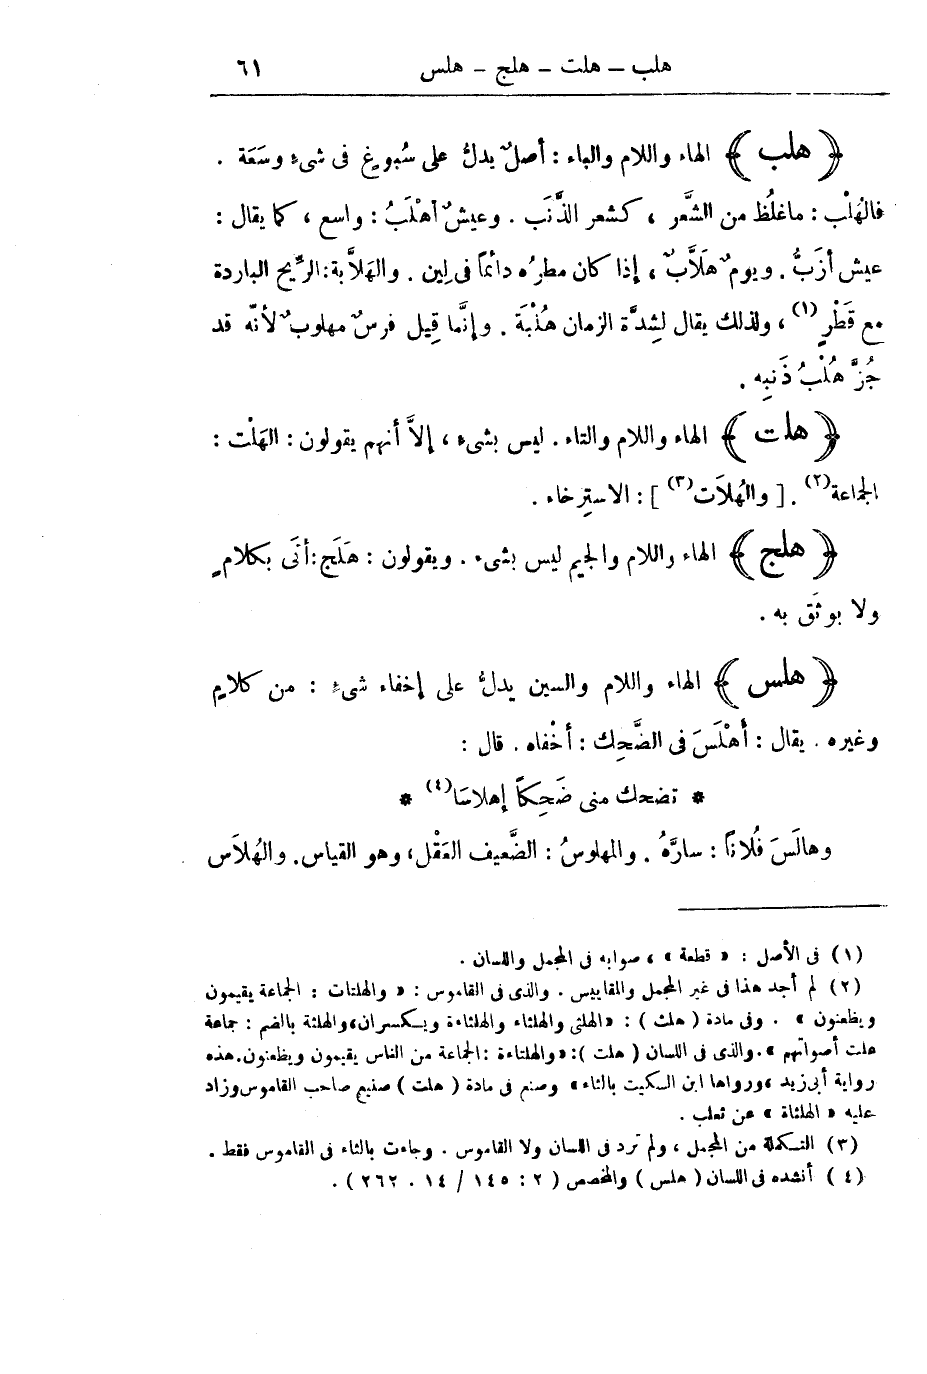 هلب — هلت — هلج — هلس ٦١
﴿ هلب ﴾ الهاء واللام والباء : أصلٌ يدلُّ على سُبوغٍ فى شىءٍ وسَعَة .
فالهُلْب : ماغلُظ من الشَّعر ، كشعر الذَّنَب . وعيشٌ أهْلَبُ : واسع ، كما يقال :
عيش أزَبُّ . ويومٌ هَلَّابٌ ، إذا كان مطرُه دائماً فى لِين . والهَلاَّبة : الرِّيح الباردة
مع قَطْرٍ (١) ، ولذلك يقال لِشدَّة الزمان هُلْبَة . وإنَّما قِيل فرسٌ مهلوبٌ لأنّه قد
جُزَّ هُلْبُ ذَنَبِه .
﴿ هلت ﴾ الهاء واللام والتاء . ليس بشىءٍ ، إلاَّ أنهم يقولون : الهَلْت :
الجماعة (٢) . [ والهُلاَت (٣) ] : الاسترخاء .
﴿ هلج ﴾ الهاء واللام والجيم ليس بشىء . ويقولون : هَلَج : أتَى بكلامٍ
ولا يوثَق به .
﴿ هلس ﴾ الهاء واللام والسين يدلُّ على إخفاء شىءٍ : من كلامٍ
وغيره . يقال : أهْلَسَ فى الضَّحِك : أخْفاه . قال :
* تضحك منى ضَحِكاً إهلاسَا (٤) *
وهالَسَ فُلاناً : سارَّهُ . والمهلوسُ : الضَّعيف العَقْل ، وهو القياس . والهُلاَس
(١) فى الأصل : « قطعة » ، صوابه فى المجمل واللسان .
(٢) لم أجد هذا فى غير المجمل والمقاييس . والذى فى القاموس : « والهلتات : الجماعة يقيمون
ويظعنون » . وفى مادة ( هلث ) : « الهلثى والهلثاء والهلثاءة ويكسران ، والهلثة بالضم : جماعة
علت أصواتهم » . والذى فى اللسان ( هلت ) : « والهلتاءة : الجماعة من الناس يقيمون ويظعنون . هذه
رواية أبى زيد ، ورواها ابن السكيت بالثاء » وصنع فى مادة ( هلث ) صنيع صاحب القاموس وزاد
عليه « الهلثاة » عن ثعلب .
(٣) التكملة من المجمل ، ولم ترد فى اللسان ولا القاموس . وجاءت بالثاء فى القاموس فقط .
(٤) أنشده فى اللسان ( هلس ) والمخصص ( ٢ : ١٤٥ / ١٤ . ٢٦٢ ) .